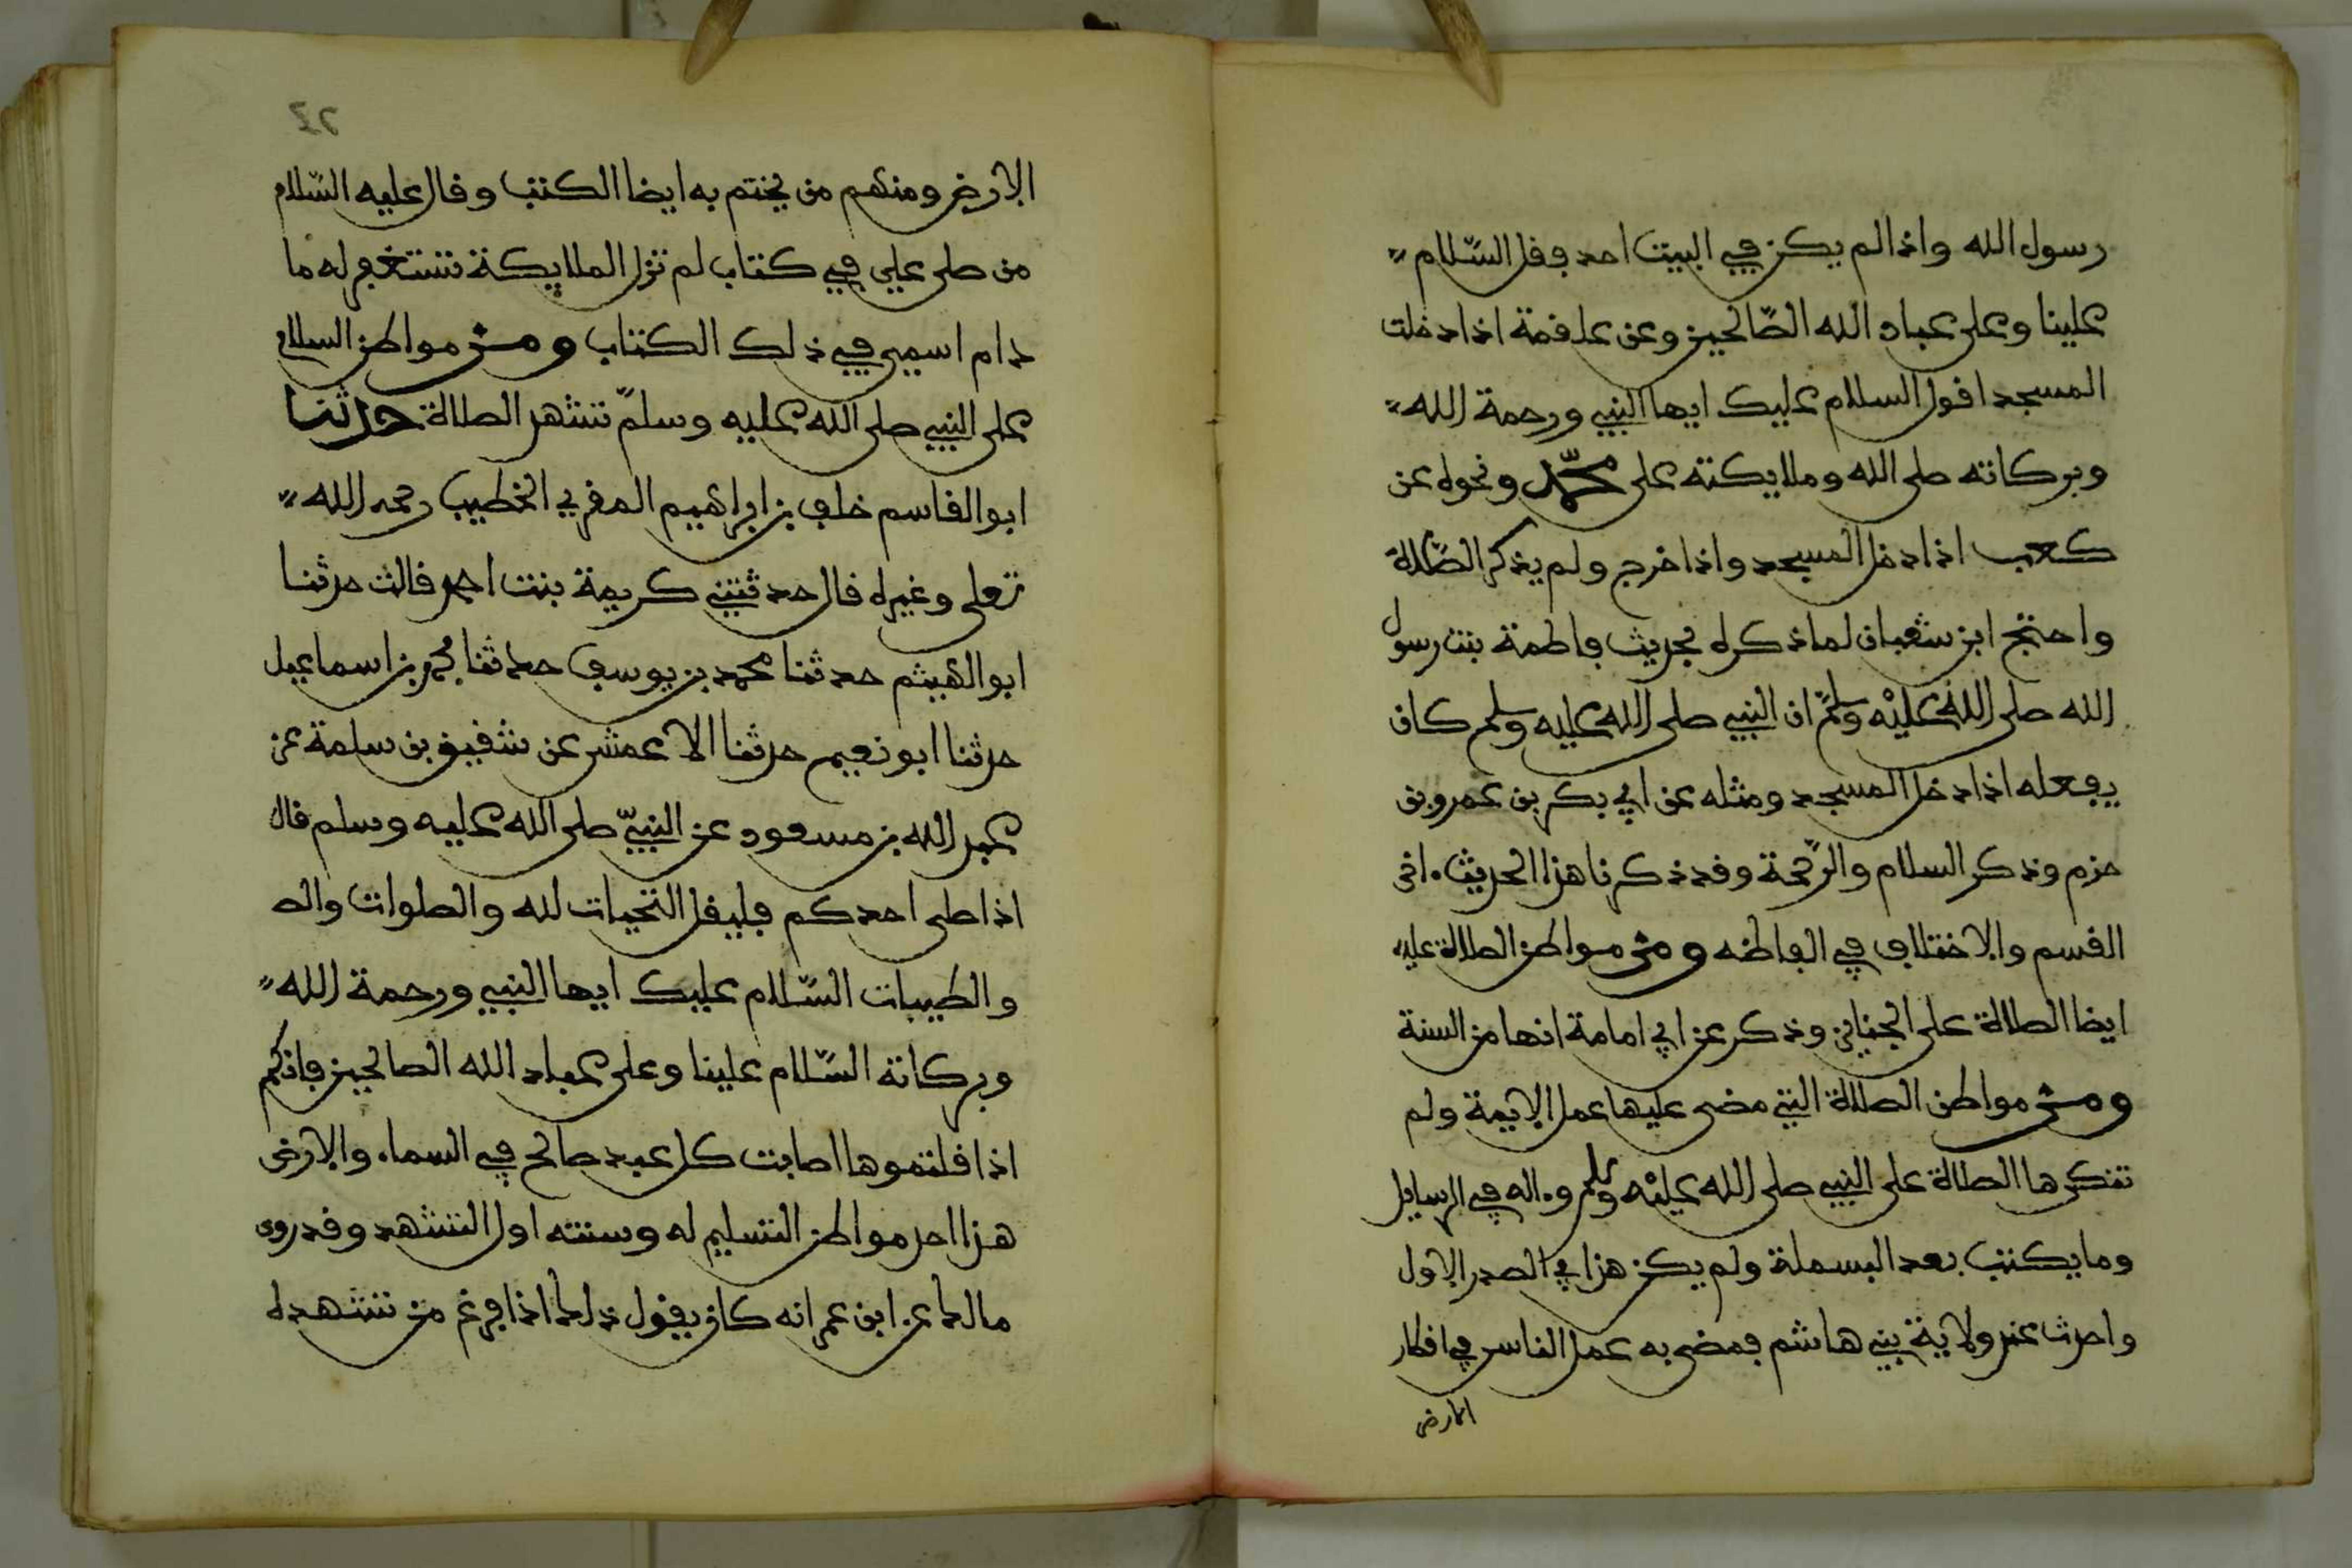 رسول الله واذا لم يكن في البيت احد فقل السّلام
علينا وعلى عباد الله الصّالحين وعن علقمة اذا دخلت
المسجد اقول السلام عليك ايها النبي ورحمة الله
وبركاته صلى الله وملايكته على محمّد ونحوه عن
كعب اذا دخل المسجد واذا خرج ولم يذكر الصّلاة
واحتج ابن شعبان لما ذكره بحديث فاطمة بنت رسول
الله صلى الله عليْه وسلّم ان النبي صلى الله عليه وسلم كان
يفعله اذا دخل المسجد ومثله عن ابي بكر بن عمرو بن
حزم وذكر السلام والرّحمة وقد ذكرنا هذا الحديث اخر
القسم والاختلاف في الفاظه ومن مواطن الصلاة عليه
ايضا الصلاة على الجنايز وذكر عن ابي امامة انها من السنة
ومن مواطن الصلاة التي مضى عليها عمل الايمة ولم
تنكرها الصلاة على النبي صلى الله عليْه وسلم وءاله في الرسايل
وما يكتب بعد البسملة ولم يكن هذا في الصدر الاول
واحدث عند ولاية بني هاشم فمضى به عمل الناس في اقطار
الارض
٢٤
الارض ومنهم من يختم به ايضا الكتب وقال عليه السّلام
من صلى علي في كتاب لم تزل الملايكة تستغفر له ما
دام اسمي في ذلك الكتاب ومن مواطن السلام
على النبي صلى الله عليه وسلمّ تشهد الصلاة حدثنا
ابو القاسم خلف بن ابراهيم المقري الخطيب رحمه الله
تعلى وغيره قال حدثتني كريمة بنت احمد قالت حدثنا
ابو الهيثم حدثنا محمد بن يوسف حدثنا محمد بن اسماعيل
حدثنا ابو نعيم حدثنا الاعمش عن شقيق بن سلمة عن
عبد الله بن مسعود عن النبيّ صلى الله عليه وسلم قال
اذا صلى احدكم فليقل التحيات لله والصلوات والط
والطيبات السّلام عليك ايها النبي ورحمة الله
وبركاته السّلام علينا وعلى عباد الله الصالحين فانكم
اذا قلتموها اصابت كل عبد صالح في السماء والارض
هذا احد مواطن التسليم له وسنته اول التشهد وقد روى
مالك عن ابن عمر انه كان يقول ذلك اذا فرغ من تشهده